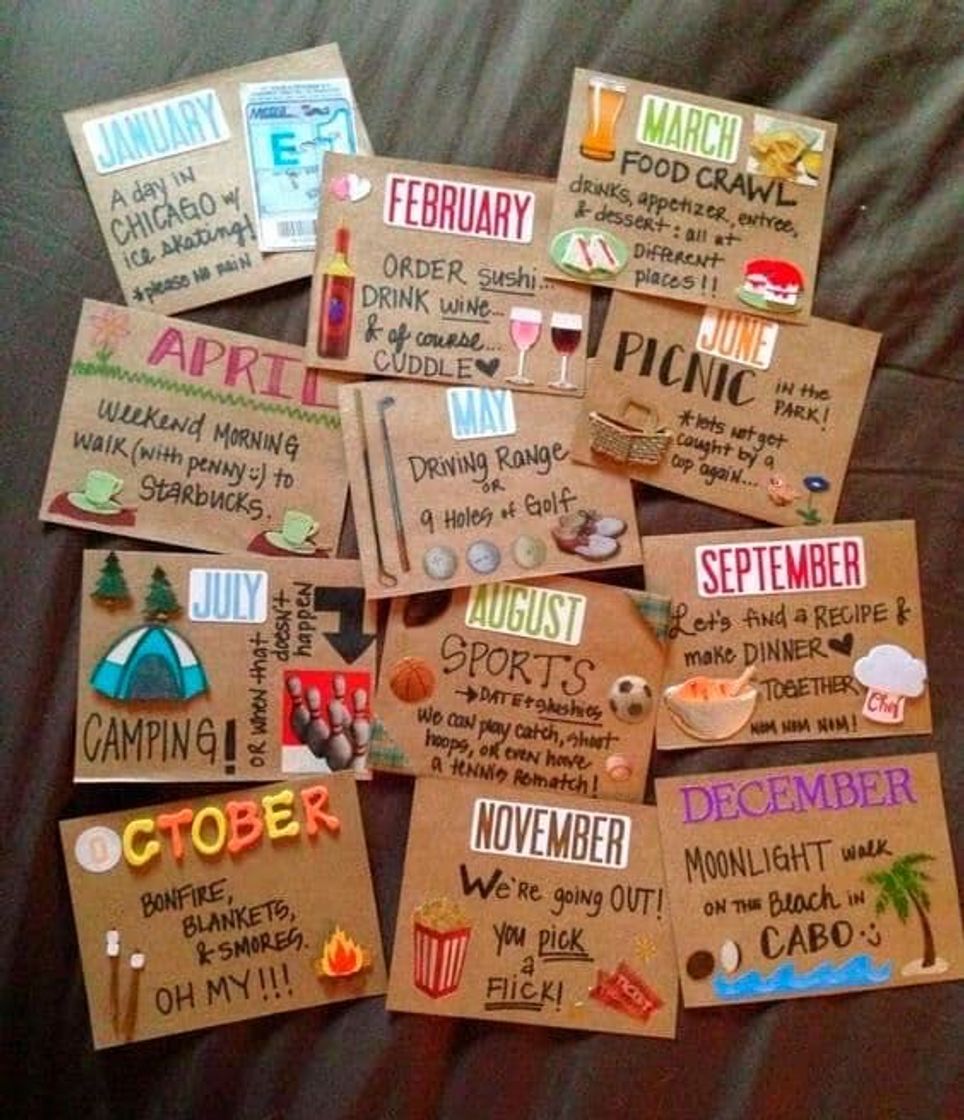 JANUARY
A day in
CHICAGO w/
ice skating!
*please NO RAIN
Metra
E
FEBRUARY
ORDER sushi...
DRINK wine...
& of course...
CUDDLE♥
MARCH
FOOD CRAWL
drinks, appetizer, entree,
& dessert: all at
Different
places!!
APRIL
Weekend MORNING
walk (with penny :) to
Starbucks.
MAY
DRIVING Range
OR
9 Holes of Golf
JUNE
PICNIC in the
PARK!
*lets not get
caught by a
cop again...
JULY
CAMPING!
OR when that
doesn't
happen
AUGUST
SPORTS
→DATE
We can play catch, shoot
hoops, or even have
a tennis Rematch!
SEPTEMBER
Let's find a RECIPE &
make DINNER♥
TOGETHER
NOM NOM NOM!
Chef
OCTOBER
BONFIRE,
BLANKETS,
& SMORES.
OH MY!!!
NOVEMBER
We're going OUT!
you pick
a
Flick!
TICKET
DECEMBER
MOONLIGHT walk
ON THE Beach in
CABO :)